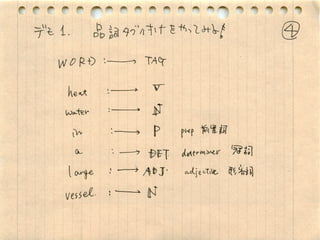 デモ1. 品詞タグ付けをやってみよう! ④
WORD :→ TAG
heat :→ V
water :→ N
in :→ P prep 前置詞
a :→ DET determiner 冠詞
large :→ ADJ. adjective 形容詞
vessel :→ N